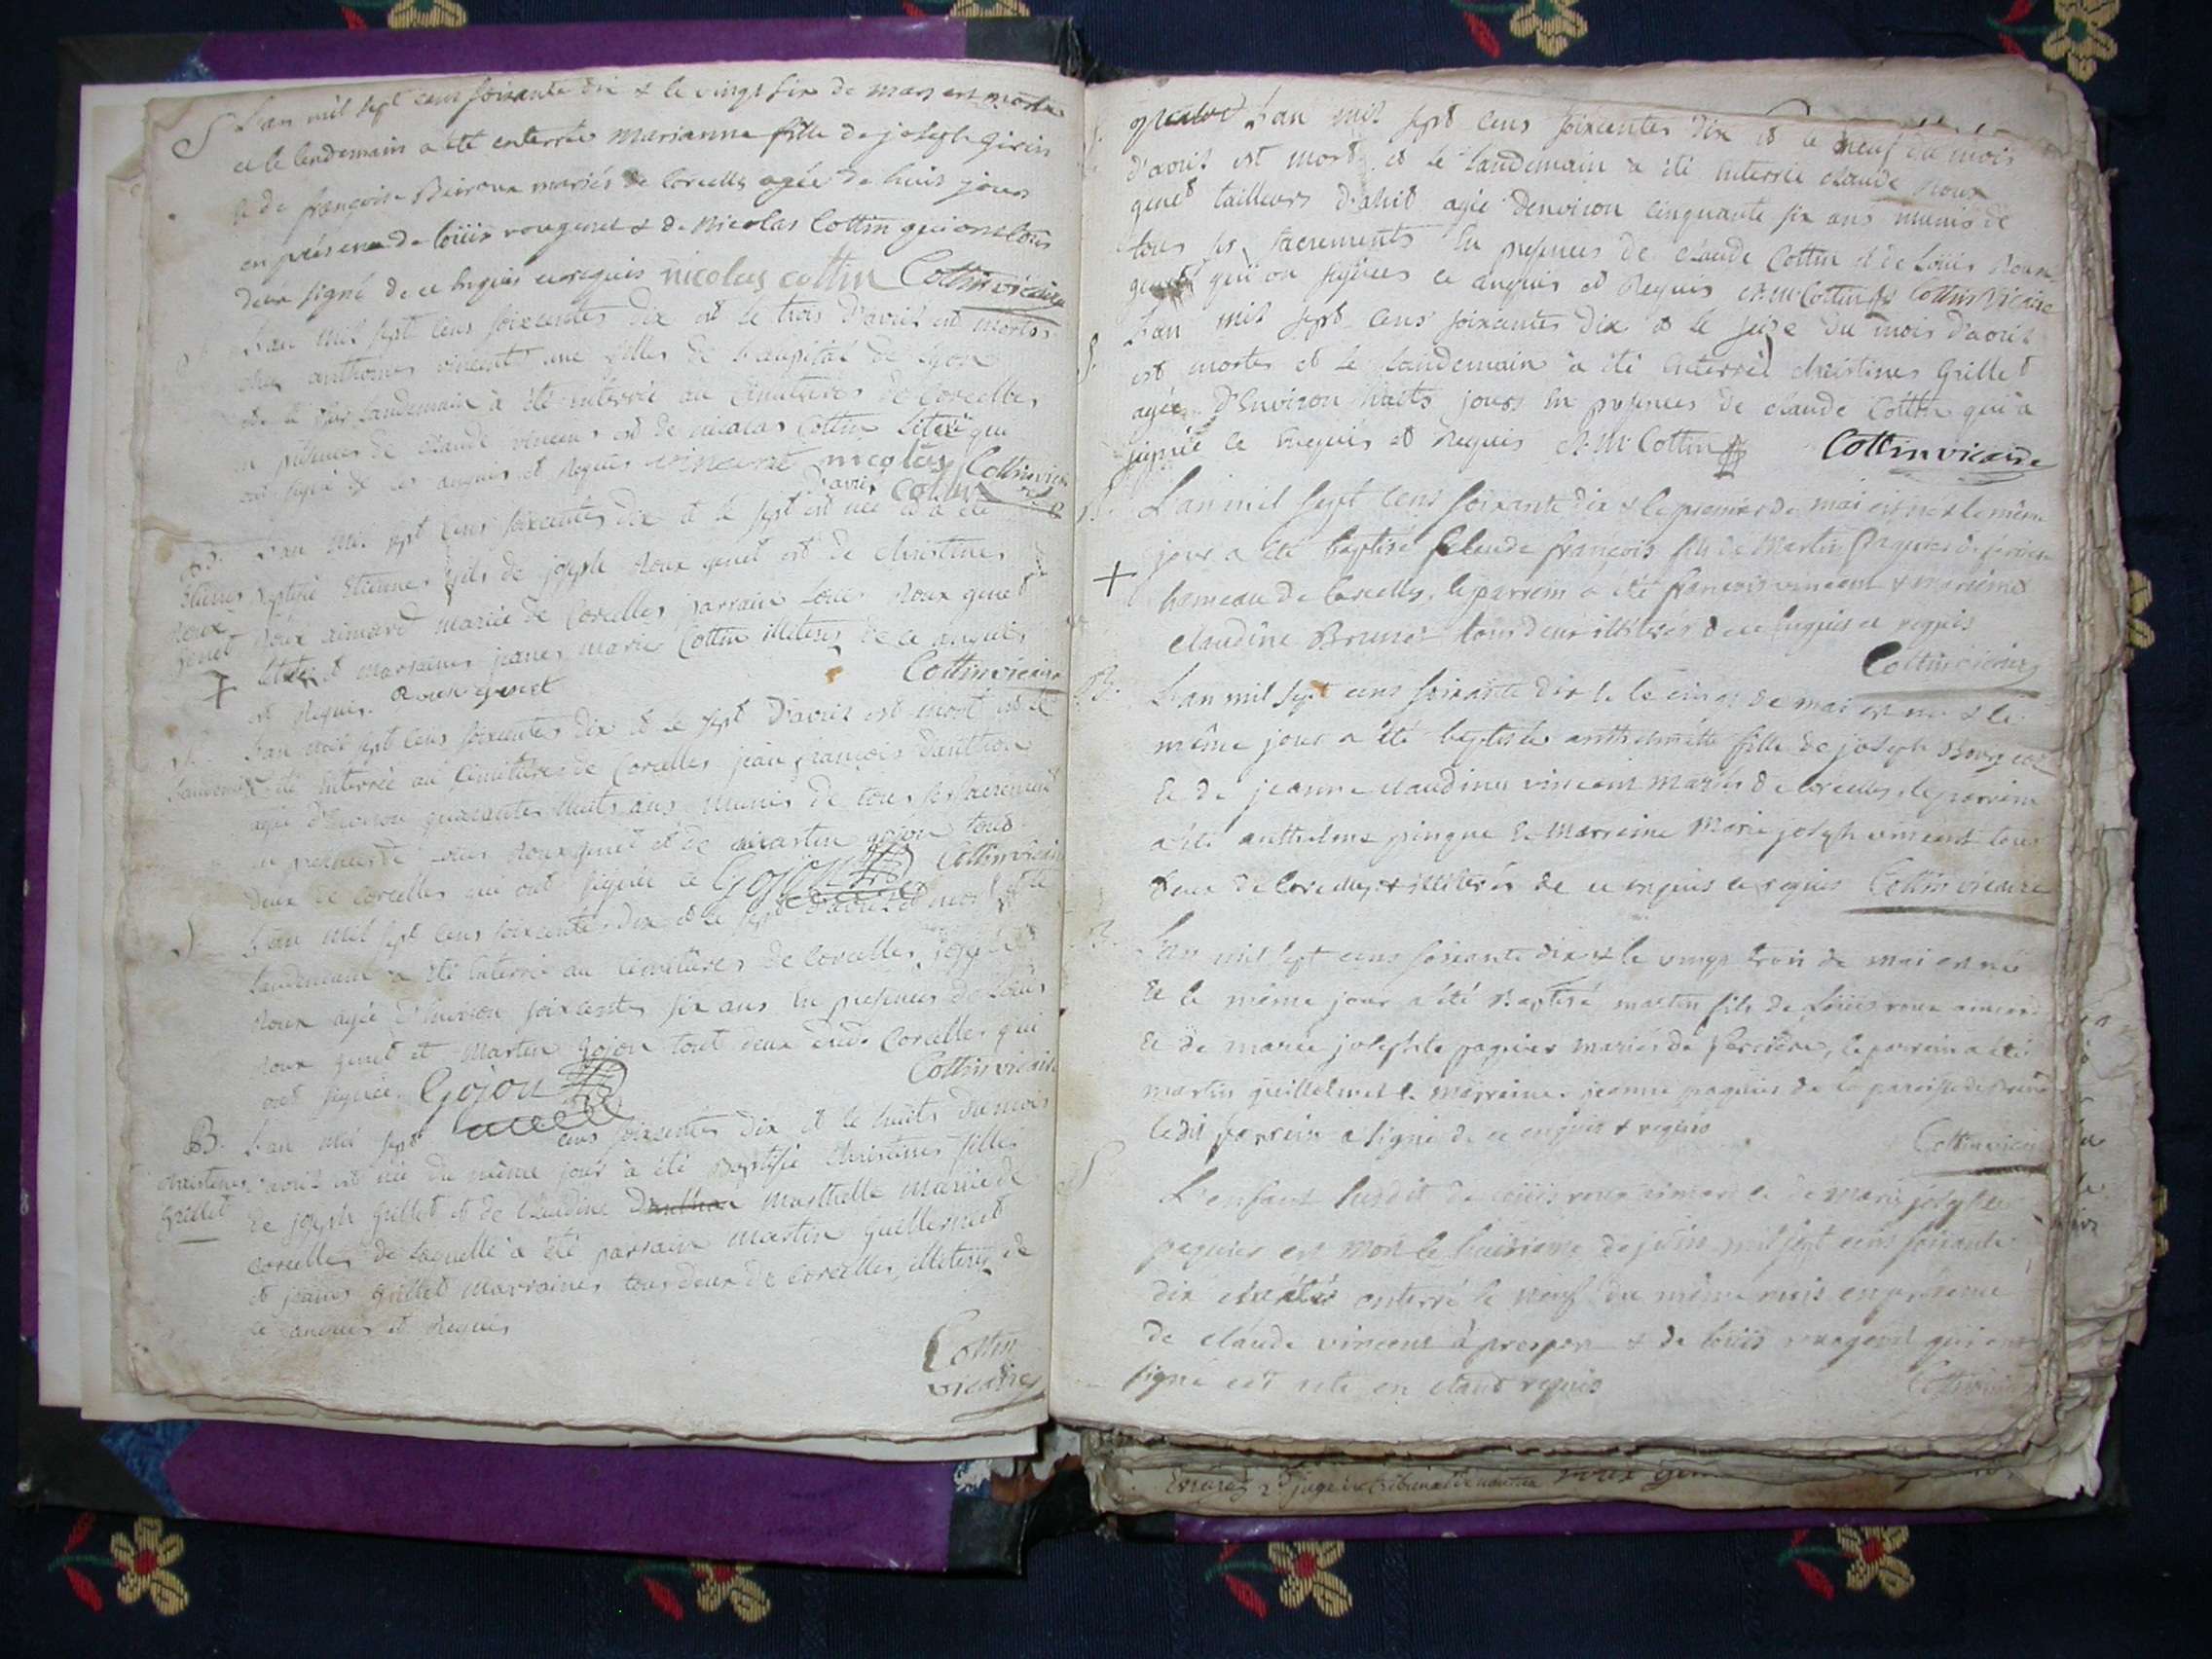 S L'an mil sept cens soixante dix & le vingt six de mars est morte
et le lendemain a été enterrée marianne fille de joseph girin
& de françoise mariés de Corcelles agée de huit jours
en présence de loüis rouxgenet & de Nicolas Cottin qui ont tous
deux signé de ce enquis et requis nicolas cottin Cottin vicaire
L'an mil sept cens soixentes dix et le trois D'avril est mortes
chez anthoines vincent une filles de de Lyon
et le landemain à été enterrée au Cimitieres de Corcelles
en presences de Claude vincent et de nicolas Cottin qui
ont signé de ce anquis et Requis vincent nicolas Cottin vicaire
D'avril cottin
B. L'an mil sept cens soixentes dix et le sept est née et a été
Etienes Baptisé Etiennes fils de joseph Roux genet et de christines
Roux Roux aimard mariée de Corcelles parrain Louis Roux genet
genet et marraines jeanes marie Cottin illiteres de ce anquis
+ et Requis. Rouxgenest Cottin vicaire
S. L'an mil sept cens soixentes dix et le sept D'avril est mort et le
landemain à été Enterrée au Cimitieres de Corcelles jean françois Dauthon
agée D'environ quarantes huits ans munis de tous ses sacrements
en presences de Louis Roux genet et de martin gojon tous
deux de Corcelles qui ont signée ce Gojon Cottin vicaire
S L'an mil sept cens soixentes dix et le sept D'avril est mort et le
landemain a été Enterré au Cimitieres de Corcelles joseph
Roux agée D'Environ soixentes six ans En presences de Louis
Roux genet et Martin gojon tout deux de Corcelles qui
ont signée. Gojon Cottin vicaire
B. L'an mil sept cens soixentes dix et le huits du mois
christines D'avril est née du même jour à été Baptisée christines filles
Grillet de joseph Grillet et de Claudine Dauthon marthelle mariée de
Corcelles de laquelle a été parrain martin guillermet
et jeanes grillet marraines tous deux de Corcelles illiteres de
ce anquis et Requis
Cottin
vicaire
S. L'an mil sept cens soixentes dix et le neuf du mois
d'avril est mort et le landemain a été Enterrée claude Roux
genet tailleurs d'abit agée denviron cinquante six ans munis de
tous ses sacrements En presences de claude Cottin et de Louis Roux
genet qui on signées ce anquis et Requis Cl. M. Cottin Cottin Vicaire
S. L'an mil sept cens soixantes dix et le seize du mois d'avril
est mortes et le landemain à été Enterrée christines Grillet
agée D'Environ huits jours En presences de claude Cottin qui a
signée ce Enquis et Requis Cl. M. Cottin Cottin vicaire
L'an mil sept cens soixante dix & le premier de mai est né & le même
jour a été baptisé Claude françois fils de Martin
+ hameau de Corcelles, le parrein a été françois vincent & marreine
claudine Brunet tous deux illitérés de ce enquis et requis
Cottin vicaire
B. L'an mil sept cens soixante dix & le cinq de mai est née & le
même jour a été baptisée anthelmette fille de joseph Bourgeoz
& de jeanne claudine vincent mariés de Corcelles, le parrein
a été anthelme pingue & Marreine Marie joseph vincent tous
deux de Corcelles & illitérés de ce enquis et requis Cottin vicaire
B. L'an mil sept cens soixante dix & le vingt trois de mai est né
Et le même jour a été Baptisé martin fils de Loüis roux aimard
Et de marie josephte paquier mariés de le parrein a été
martin guillermet & marreine jeanne paquier de la paroisse de
ledit parrein a signé de ce enquis & requis
Cottin vicaire
S L'enfant susdit de loüis roux aimard & de marie josephte
paquier est mort le huitieme de juin mil sept cens soixante
dix et a été enterré le neuf du même mois en présence
de claude vincent & de loüis rouxgenet qui ont
signé en étant requis
Cottin vicaire